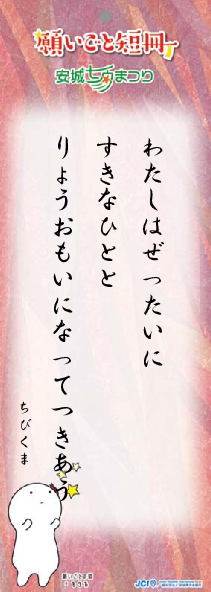 願いごと短冊
安城七夕まつり
わたしはぜったいに
すきなひとと
りょうおもいになってつきあう
ちびくま
願いごと短冊
JCI